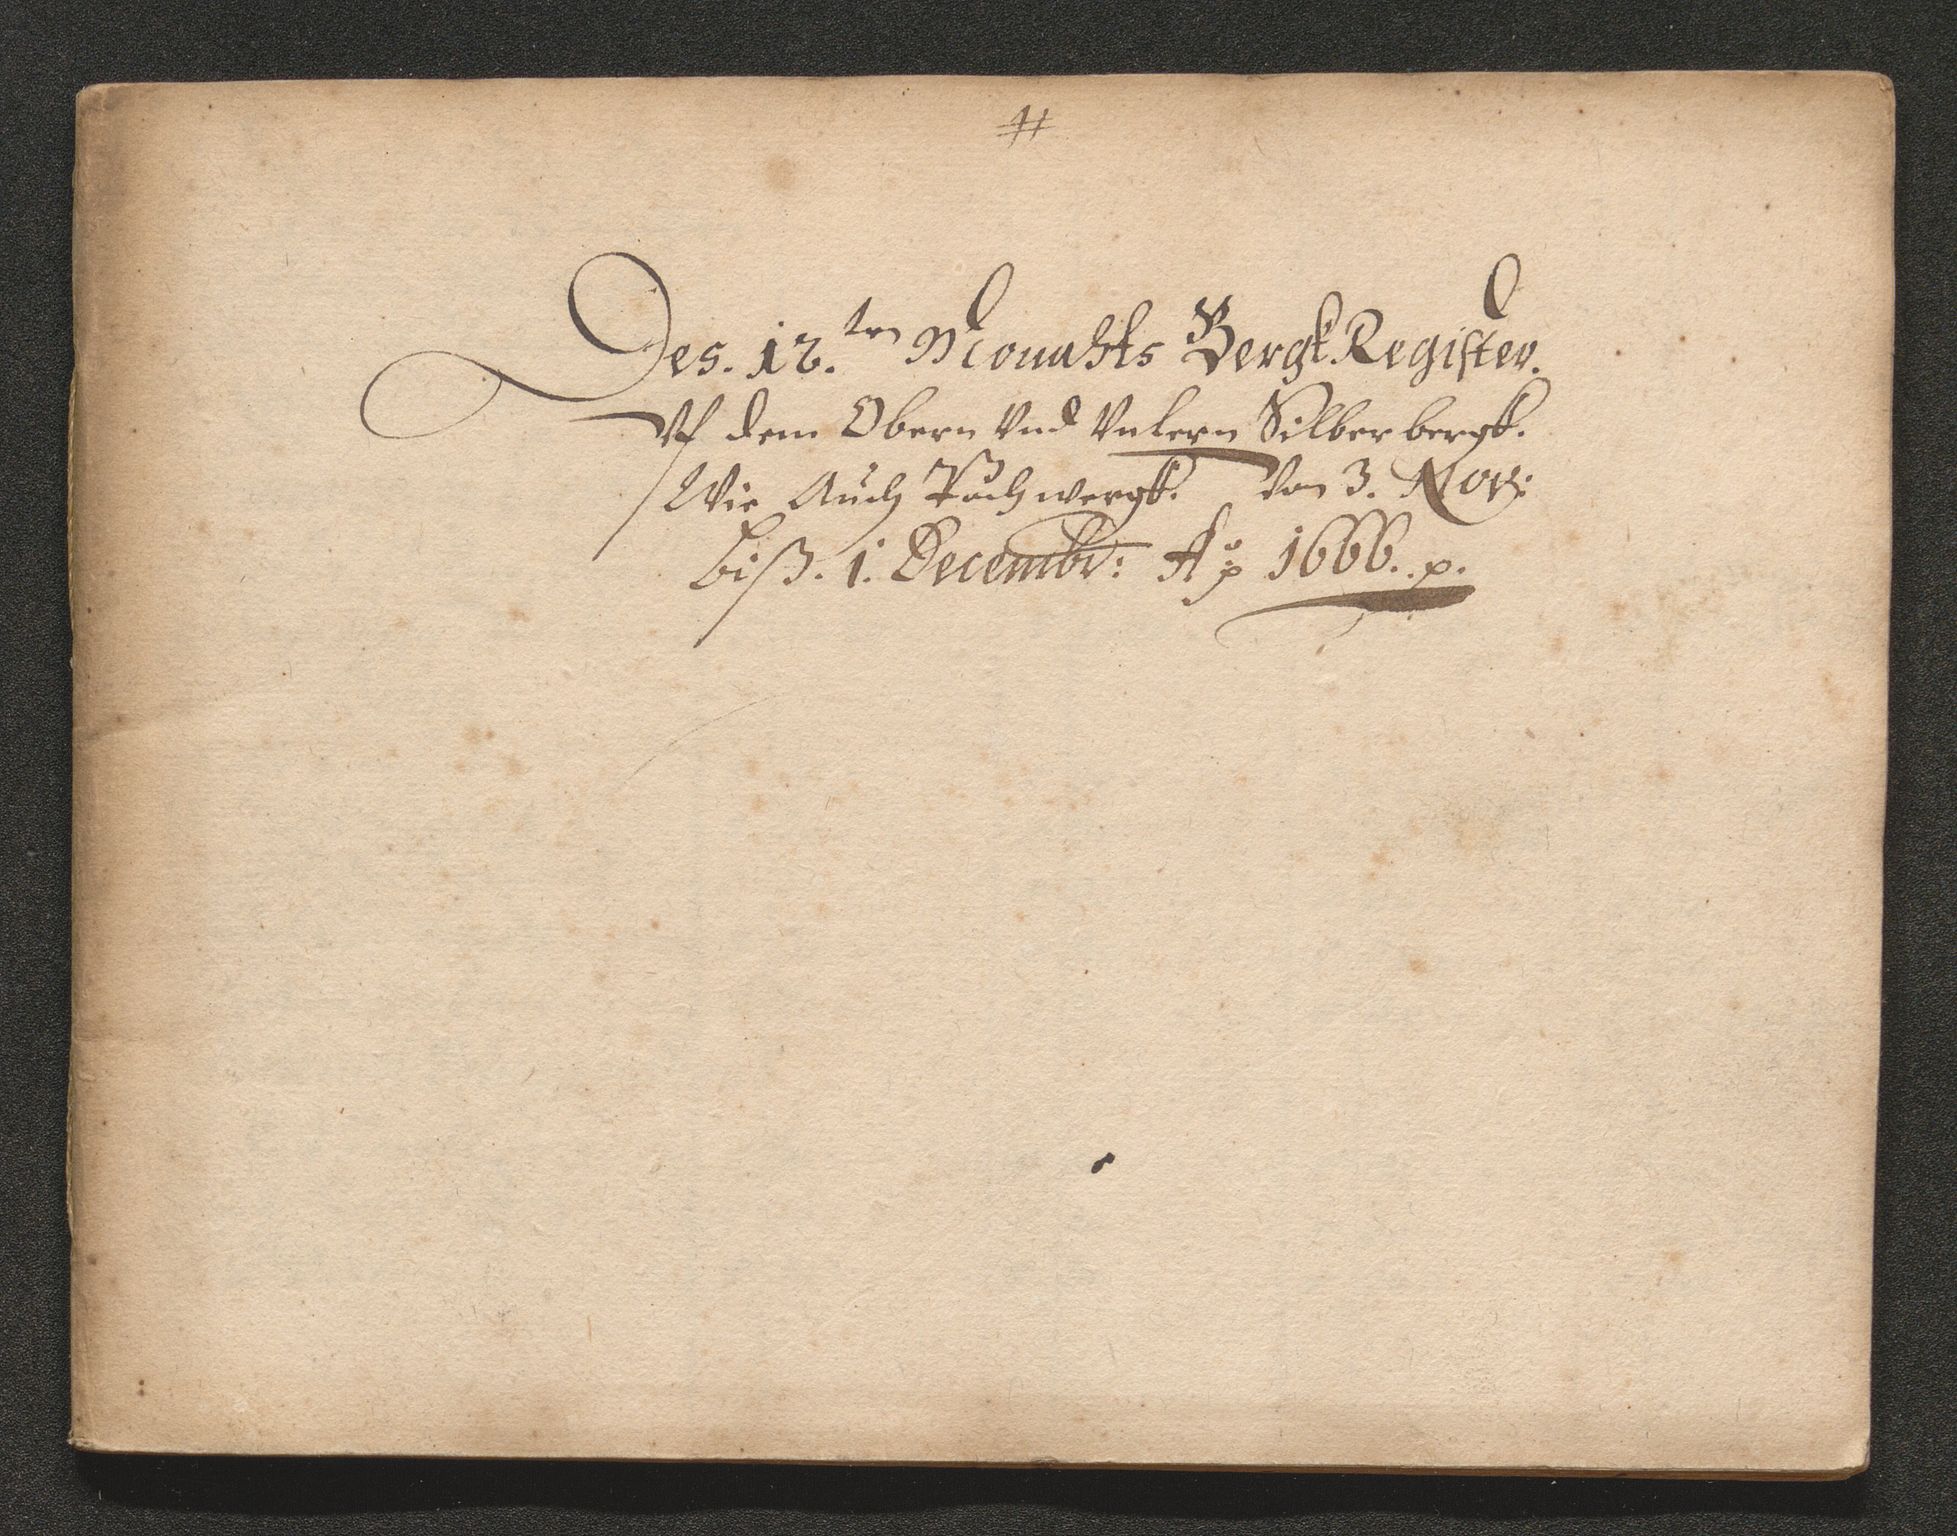 Des. 12.ten Monahts Bergk Register.
Vf dem Obern Vnd Vntern Silberbergk.
Wie Auch Puchwergk. Von 3. Nov:
biß. 1. Decembr: Ao 1666. p.